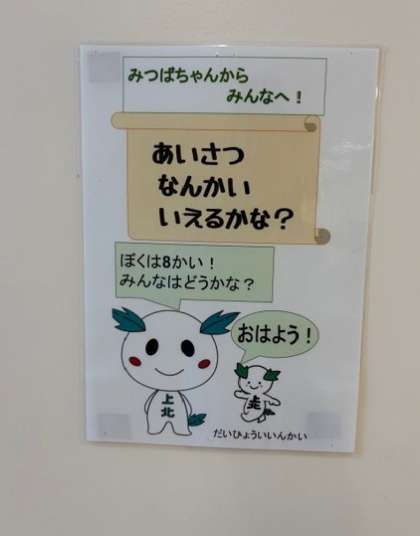 みつばちゃんから
みんなへ！
あいさつ
なんかい
いえるかな？
ぼくは8かい！
みんなはどうかな？
おはよう！
上
北
だいひょういいんかい